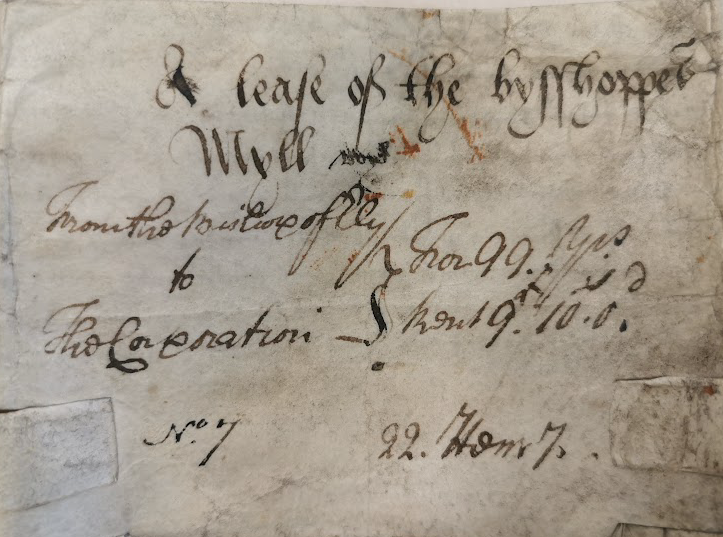 A lease of the bysshoppes
Myll
From the Bishop of Ely
to
The Corporation
For 99. Yrs
Rent 9. 10. 0.
li s d
No. 7
22. Hen: 7.